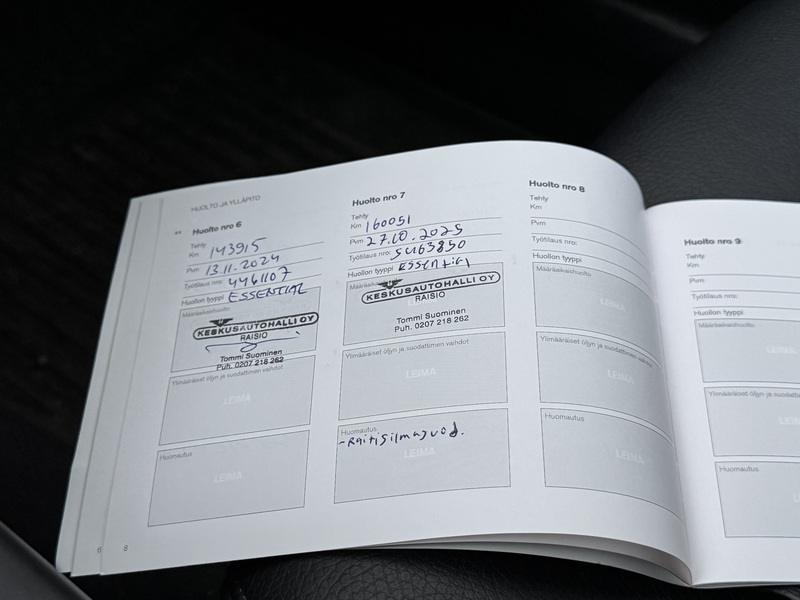 HUOLTO JA YLLÄPITO
Huolto nro 6
Tehty
Km 143915
Pvm 13.11.2024
Työtilaus nro: 4461107
Huollon tyyppi ESSENTIAL
Määräaikaishuolto
KESKUSAUTOHALLI OY
RAISIO
Tommi Suominen
Puh. 0207 218 262
Ylimääräiset öljyn ja suodattimen vaihdot
LEIMA
Huomautus
LEIMA
6
8
Huolto nro 7
Tehty
Km 160051
Pvm 27.10.2025
Työtilaus nro: 5463850
Huollon tyyppi ESSENTIAL
KESKUSAUTOHALLI OY
RAISIO
Tommi Suominen
Puh. 0207 218 262
Ylimääräiset öljyn ja suodattimen vaihdot
LEIMA
Huomautus
LEIMA
Huolto nro 8
Tehty
Km
Pvm
Työtilaus nro:
Huollon tyyppi
Määräaikaishuolto
LEIMA
Ylimääräiset öljyn ja suodattimen vaihdot
LEIMA
Huomautus
LEIMA
Huolto nro 9
Tehty
Km
Pvm
Työtilaus nro:
Huollon tyyppi
Määräaikaishuolto
LEIMA
Ylimääräiset öljyn ja
LEIMA
Huomautus